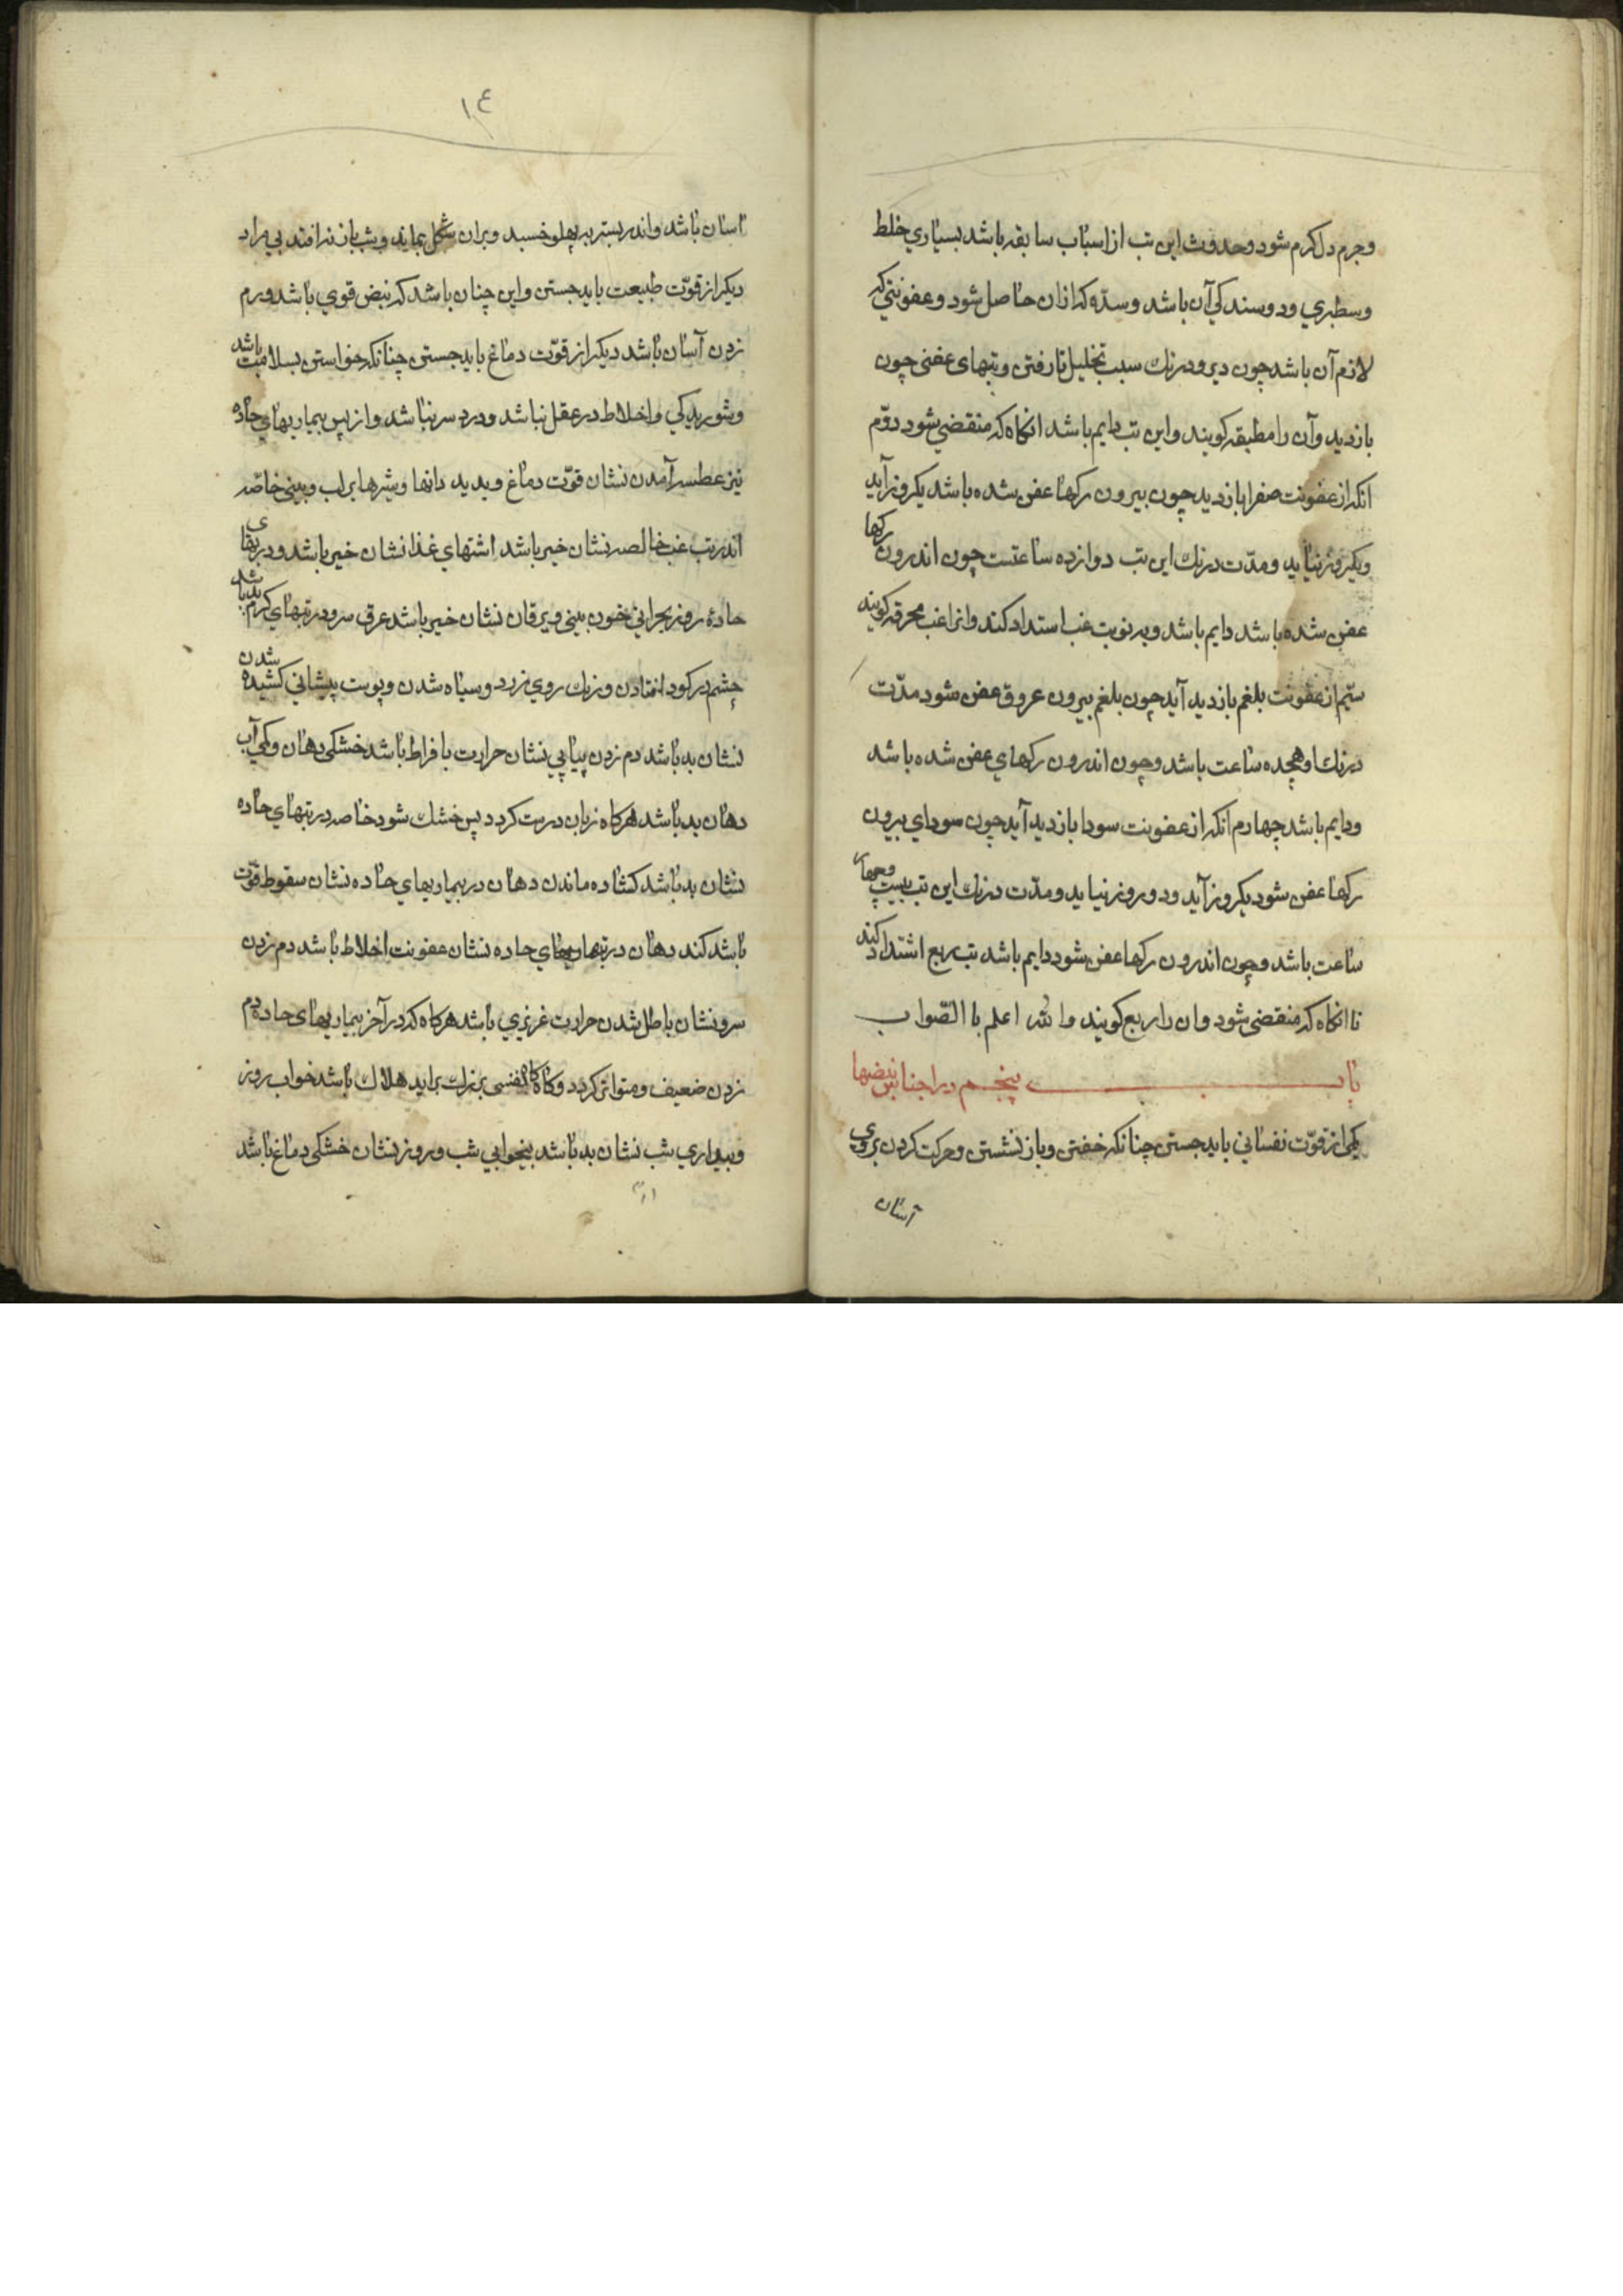 وجرم دل کرم شود وحدوث این تب از اسباب سابقه باشد بسیاري خلط
وسطبري ودوسندکي آن باشد وسدّه که ازان حاصل شود وعفونتي که
لازم آن باشد چون دیر ودرنك سبب تحلیل تا رفتن وتبهاى عفنى چون
بازدید وآن را مطبقه کویند واین تب دایم باشد انکاه که منقضي شود دوّم
انکه از عفونت صفرا بازدید چون بیرون رکها عفن شده باشد یکروز آید
ویکروز نیاید ومدّت درنك این تب دوازده ساعتست چون اندرون رکها
عفن شده باشد دایم باشد وبر نوبت غب استداد کند وانرا غب محرقه کویند
سیّم از عفونت بلغم بازدید آید چون بلغم بیرون عروق عفن شود مدّت
درنك او هجده ساعت باشد وچون اندرون رکهاي عفن شده باشد
ودایم باشد چهارم انکه از عفونت سودا بازدید آید چون سوداي بیرون
رکها عفن شود یکروز آید ودو روز نیاید ومدّت درنك این تب بیست وچهار
ساعت باشد وچون اندرون رکها عفن شود دایم باشد تب ربع اشتداد کند
تا انکاه که منقضى شود وان را ربع کویند والله اعلم با الصّواب
باب پنجم در اجناس نبضها
یکى از قوّت نفساني باید جستن چنانکه خفتن وباز نشستن وحرکت کردن بروى
آسان
١٤
اسان باشد واندر بستر بر پهلو خسبد وبران شکل بماند وشب باز نرافتد بي مراد
دیکر از قوّت طبیعت باید جستن واین چنان باشد که نبض قوي باشد ودم
زدن آسان باشد دیکر از قوّت دماغ باید جستن چنانکه خواستن بسلامت باشد
وشوریدکي واخلاط در عقل نباشد ودرد سر نباشد واز پس بیماریهاي حادّه
نیز عطسه آمدن نشان قوّت دماغ وبدید دانها وبثرها بر لب وبیني خاصّه
اندر تب غب خالصه نشان خیر باشد اشتهاي غذا نشان خیر باشد ودر تبهاى
حادۀ روز بحراني خون بیني ویرقان نشان خیر باشد عرق سرد در تبهاي کرم بد باشد
چشم در کود افتادن ورنك روي زرد وسیاه شدن وپوست پیشاني کشیده شدن
نشان بد باشد دم زدن پیاپي نشان حرارت بافراط باشد خشکى دهان وکمي آب
دهان بد باشد هرکاه زبان درست کردد پس خشك شود خاصه در تبهاي حاده
نشان بد باشد کشاده ماندن دهان در بیماریهاي حاده نشان سقوط قوّت
باشد کند دهان در تبهاي حاده نشان عفونت اخلاط باشد دم زدن
سرد نشان باطل شدن حرارت غریزي باشد هرکاه که در آخر بیماریهاى حاده دم
زدن ضعیف ومتواتر کردد وکاه کاه نفسى بزرك براید هلاك باشد خواب روز
وبیداري شب نشان بد باشد بیخوابي شب وروز نشان خشکى دماغ باشد